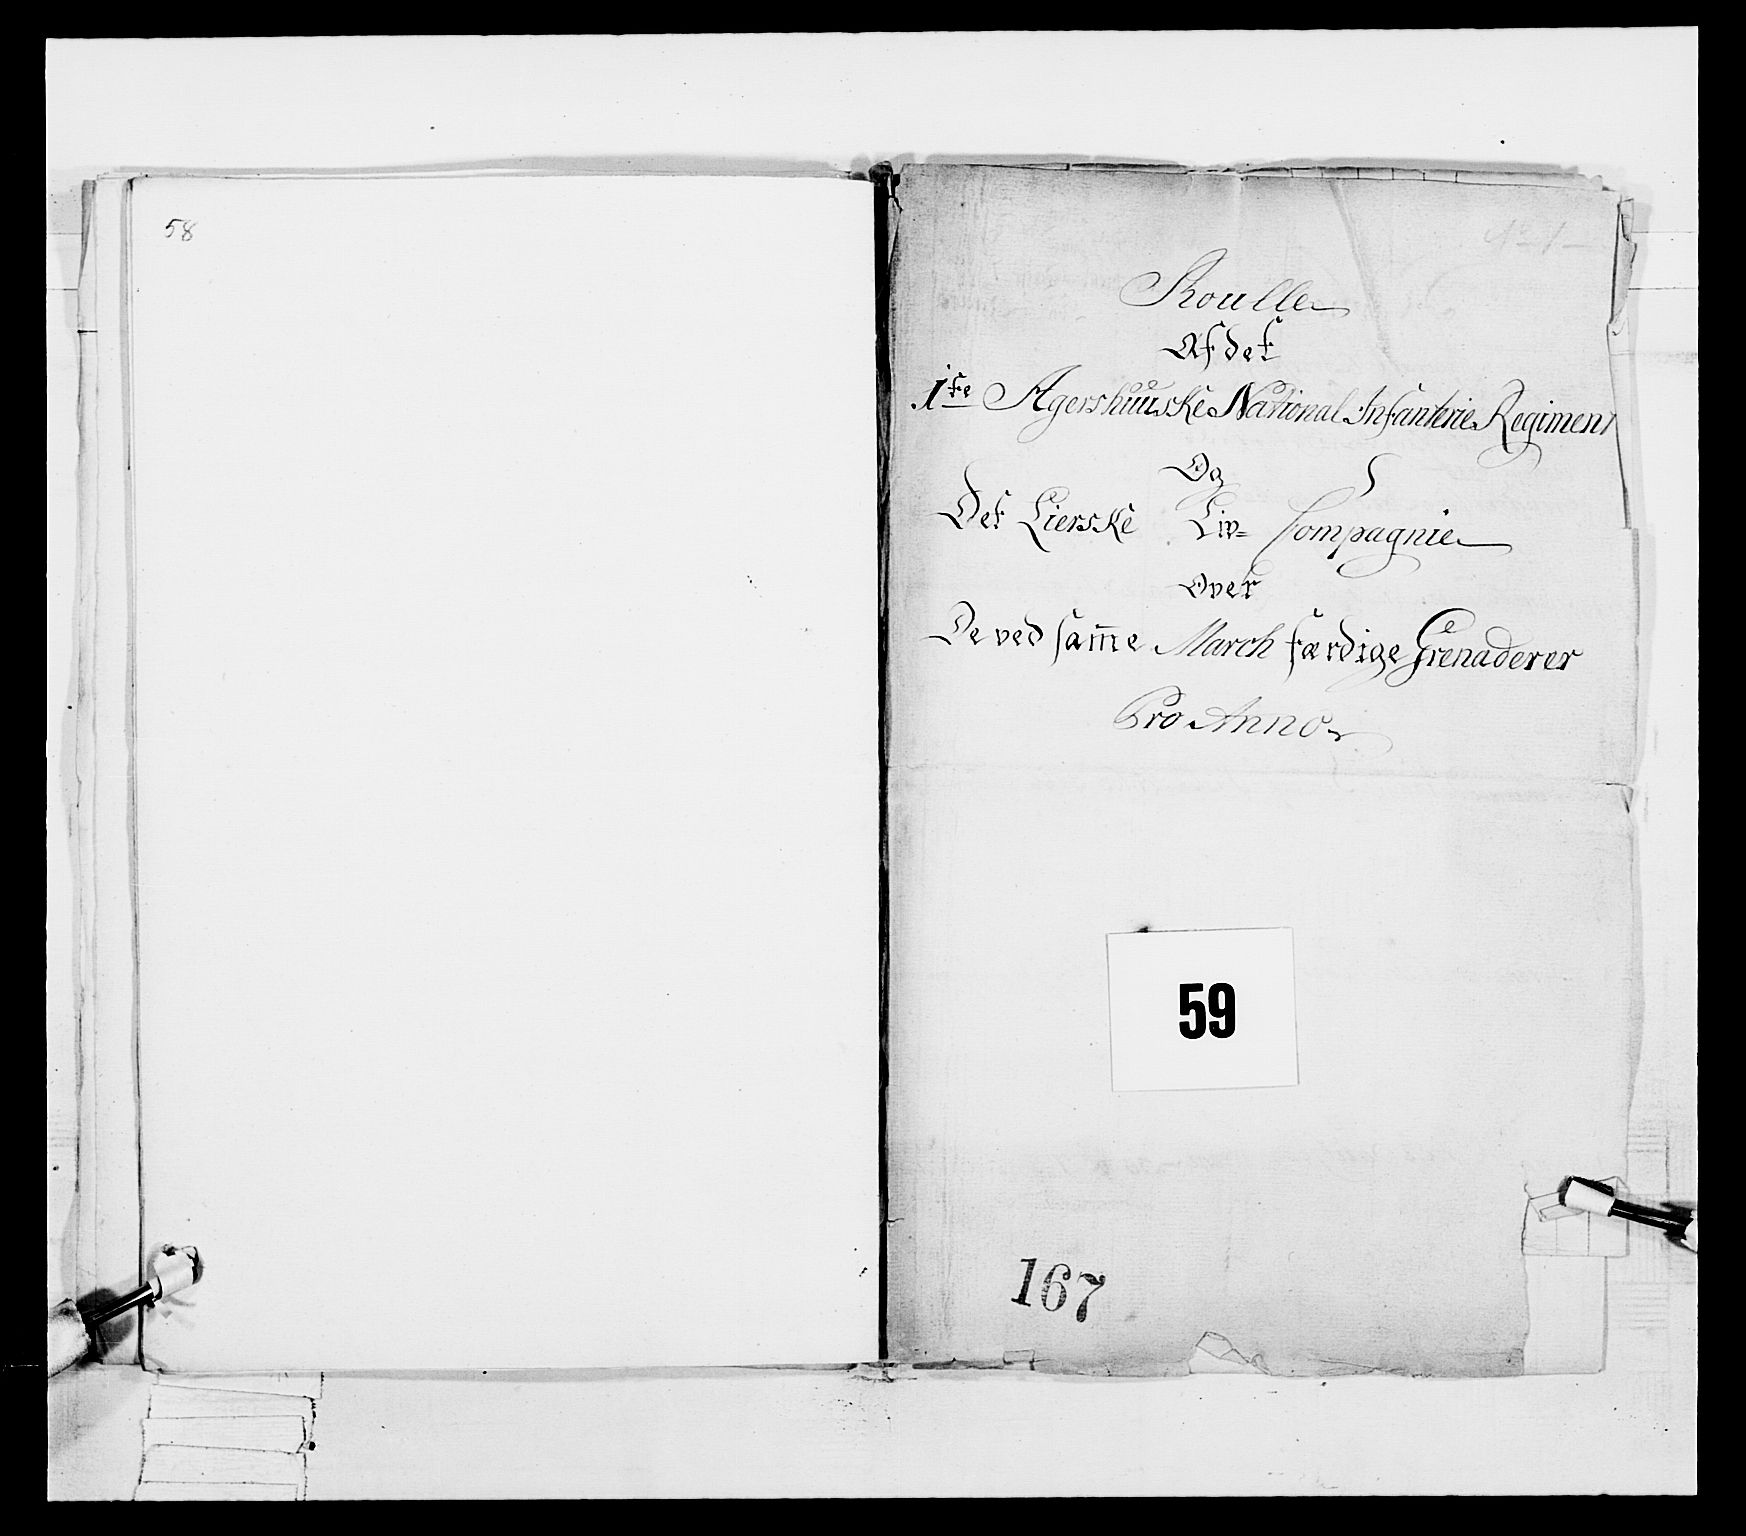 58
Roulle
Af det
1ste Agershuuske National Infanterie Regiment
Og
Det Lierske Liv= Compagnie
Over
De ved sam̄e March færdige Grenaderer
Pro Anno
59
167